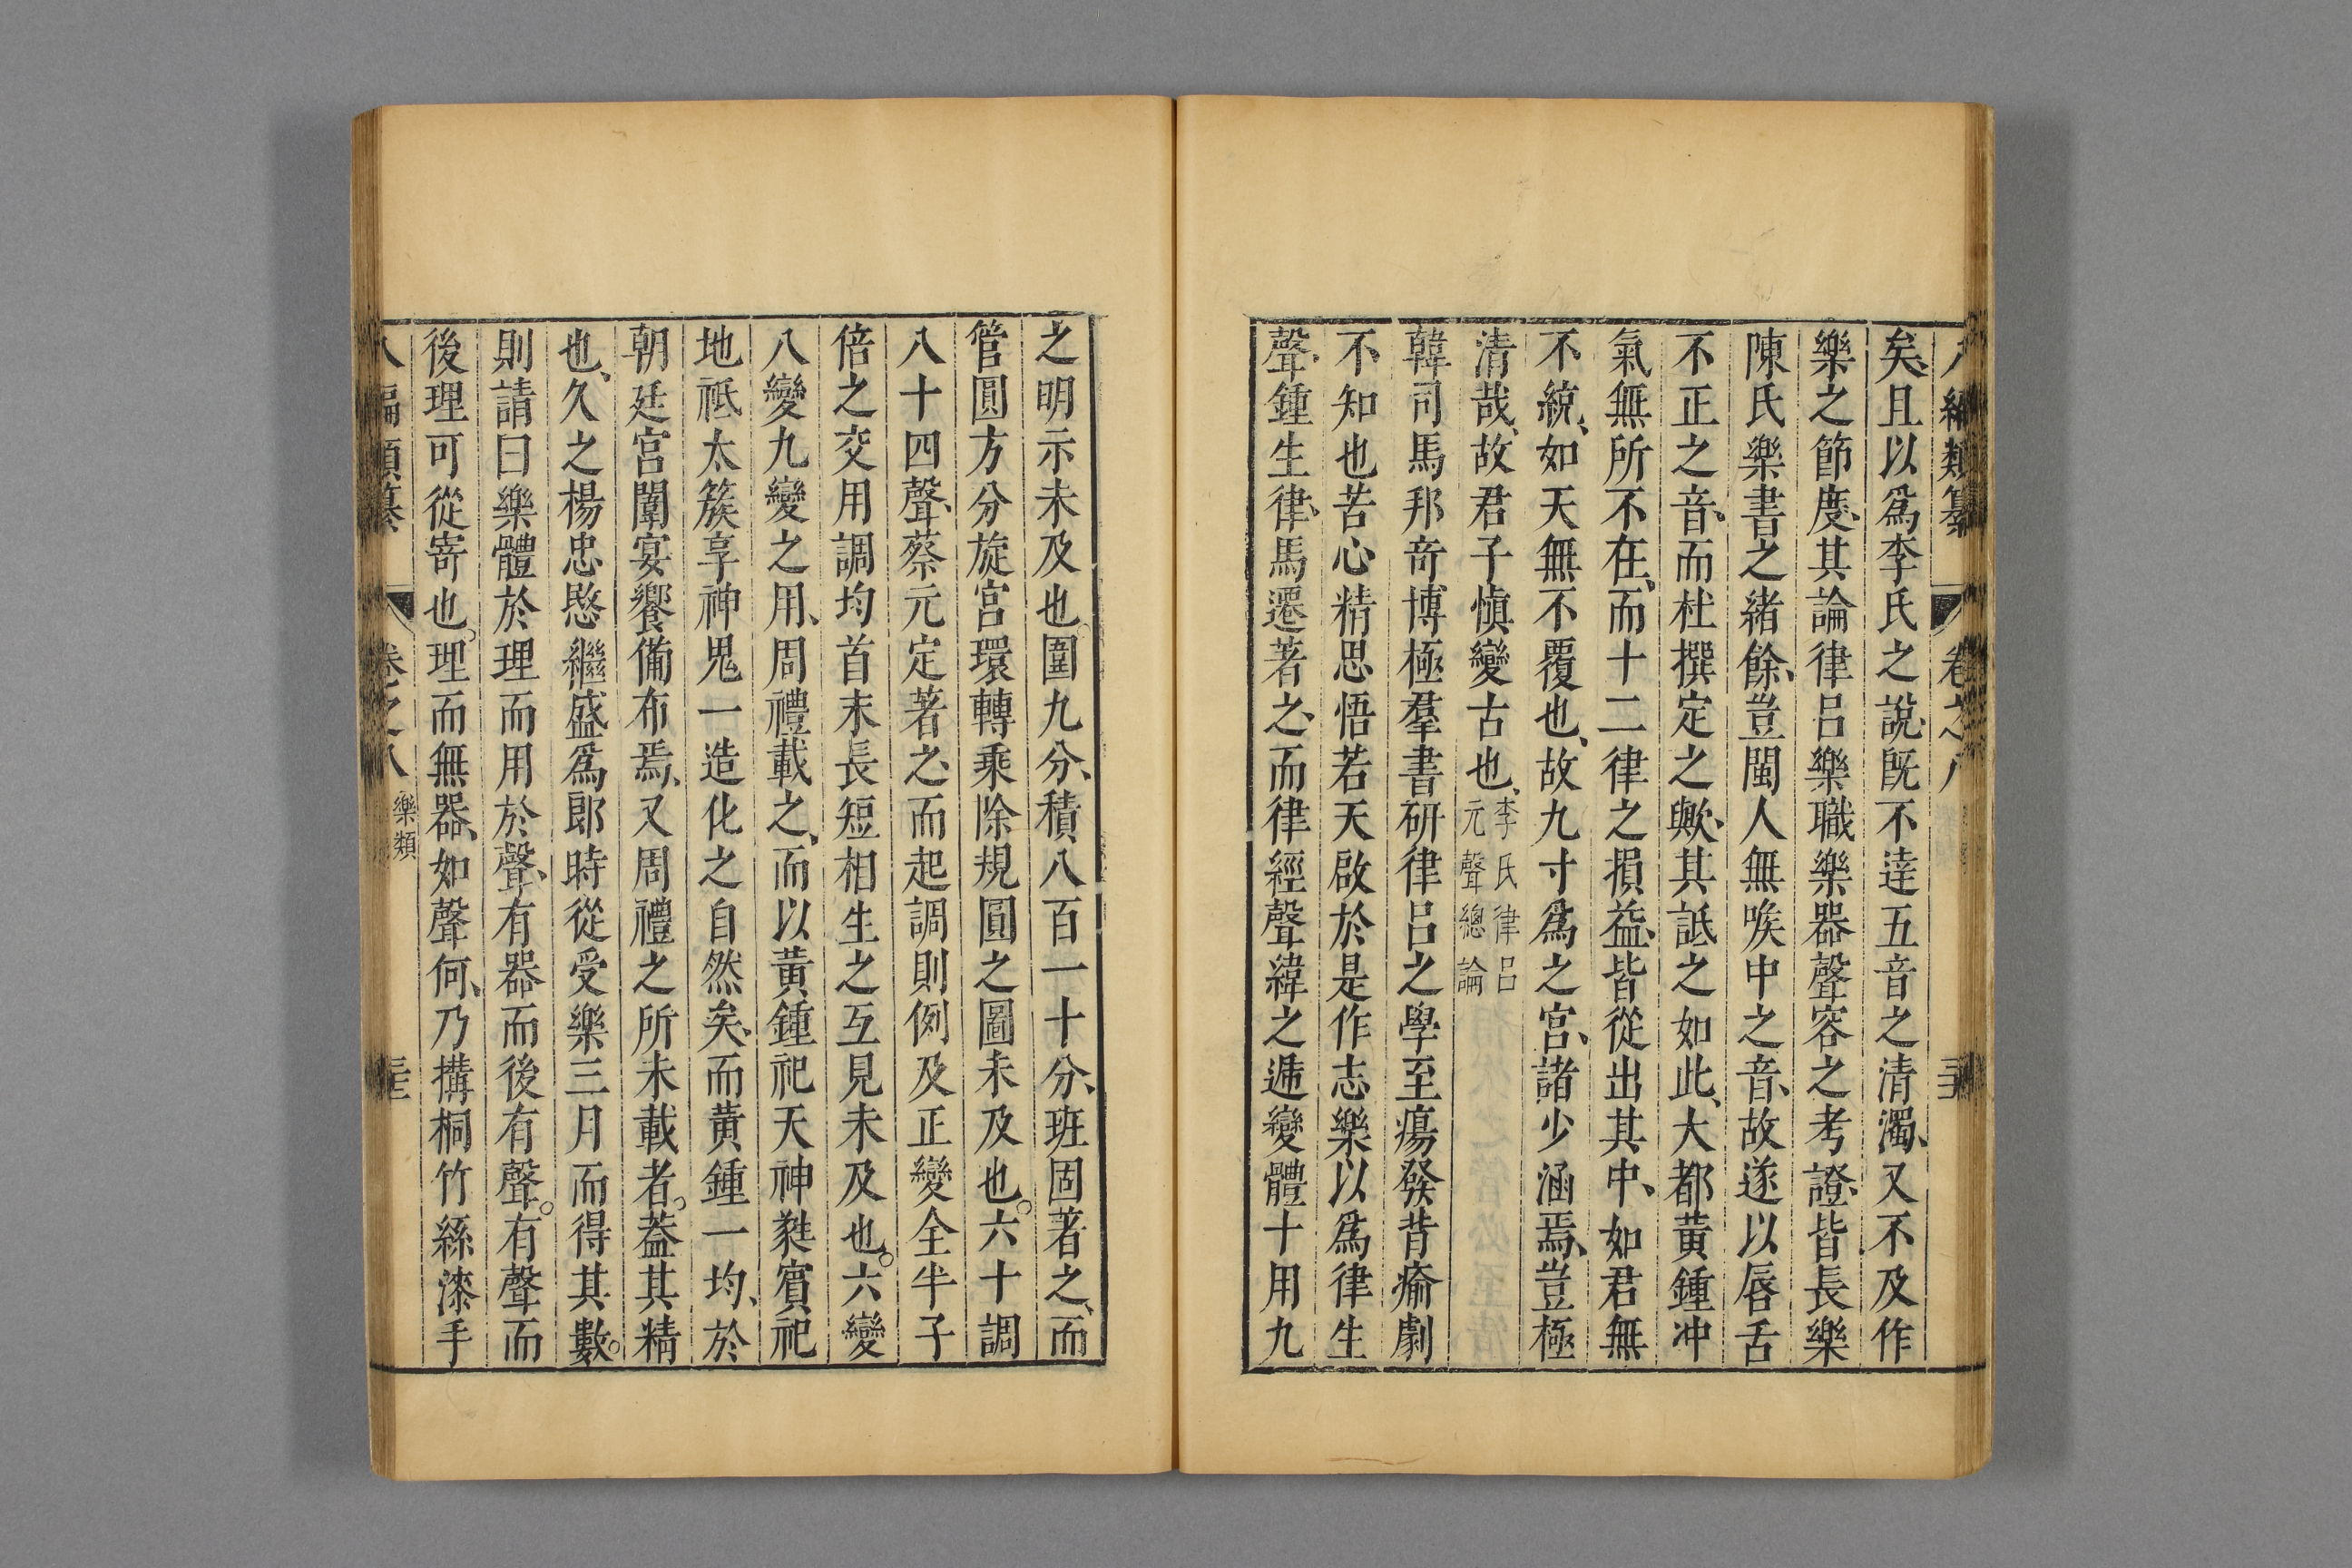 八編類纂 卷之八
矣、且以爲李氏之說、旣不達五音之清濁、又不及作
樂之節度、其論律呂樂職樂器聲容之考證、皆長樂
陳氏樂書之緒餘、豈閩人無喉中之音、故遂以唇舌
不正之音、而杜撰定之歟、其詆之如此、大都黃鍾冲
氣無所不在、而十二律之損益、皆從出其中、如君無
不統、如天無不覆也、故九寸爲之宮、諸少涵焉、豈極
清哉、故君子愼變古也、李氏律呂元聲總論
韓司馬邦奇博極羣書研律呂之學至瘍發背瘉劇
不知也苦心精思悟若天啟於是作志樂以爲律生
聲、鍾生律、馬遷著之、而律經聲緯之遞變體十用九
之明示未及也圍九分、積八百一十分、班固著之、而
管圓方分旋宮環轉乘除規圓之圖未及也。六十調
八十四聲、蔡元定著之、而起調則例及正變全半子
倍之交用調均首末長短相生之互見未及也。六變
八變九變之用、周禮載之、而以黃鍾祀天神蕤賓祀
地祗太簇享神鬼一造化之自然矣、而黃鍾一均、於
朝廷宮闈宴饗備布焉、又周禮之所未載者。葢其精
也、久之楊忠愍繼盛爲郎時從受樂三月而得其數。
則請曰樂體於理而用於聲、有器而後有聲。有聲而
後理可從寄也。理而無器、如聲何、乃搆桐竹絲漆手
八編類纂 卷之八 樂類